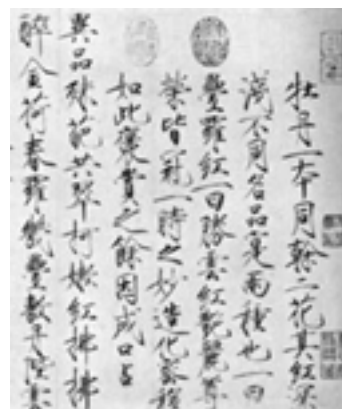 牡丹一本同榦二花其紅深
淺不同名品寔兩種也一曰
疊羅紅一曰勝雲紅艷麗尊
榮皆冠一時之妙造化密移
如此褒賞之餘因成口占
異品殊葩共翠柯嫩紅拂拂
醉金荷春羅幾疊敷丹陛雲